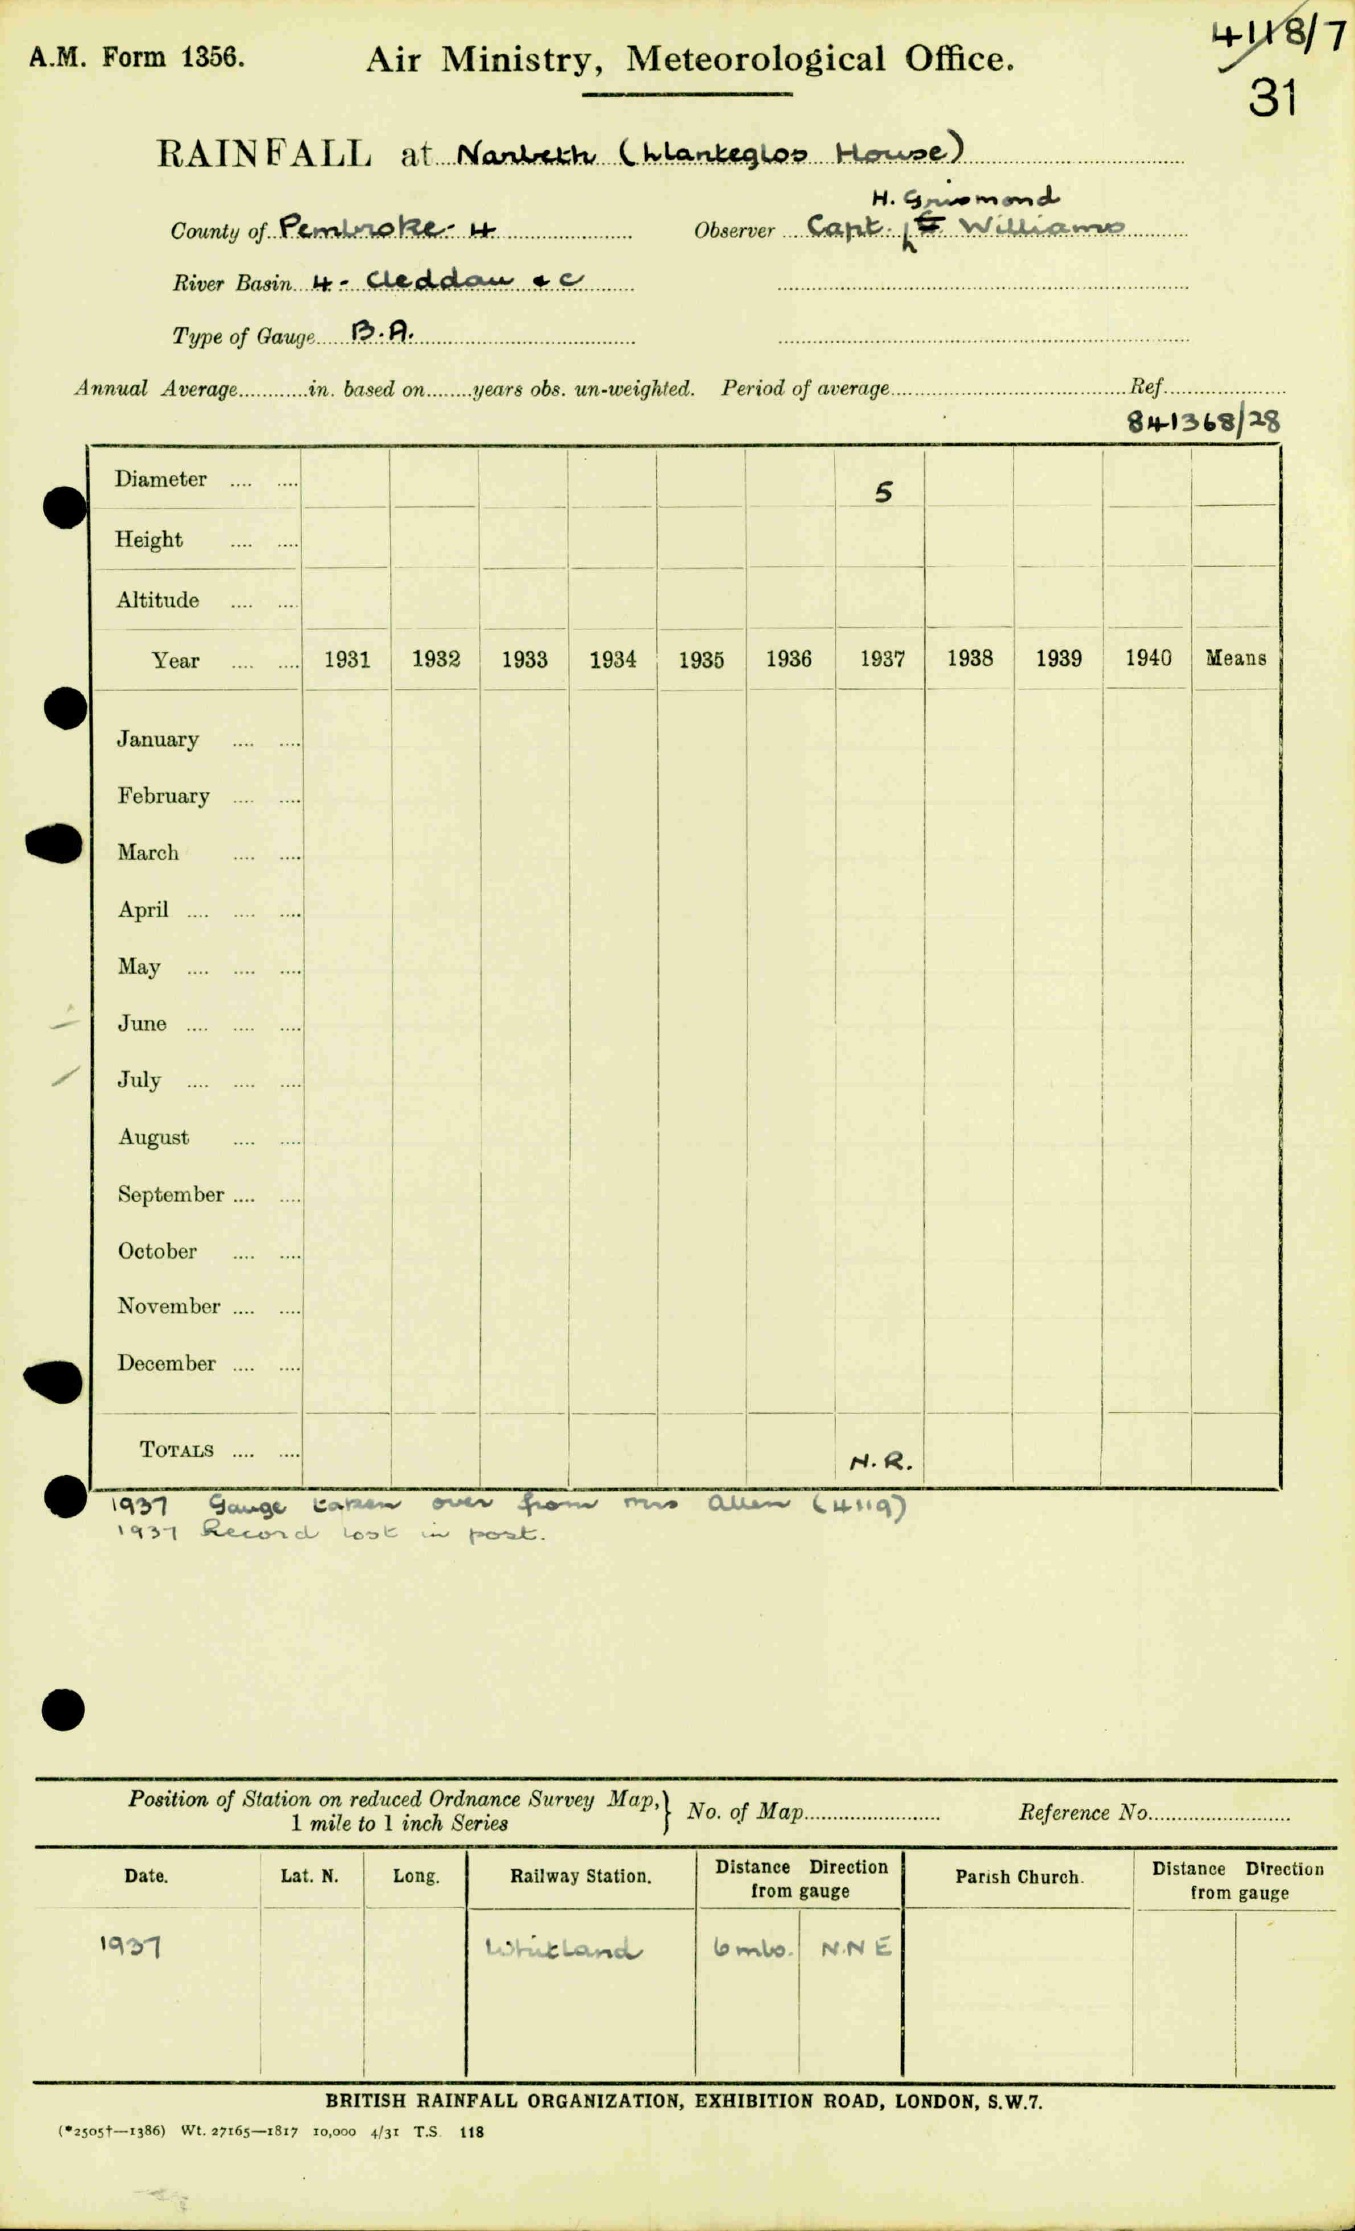 4118/7
A.M. Form 1356. Air Ministry, Meteorological Office.
31
RAINFALL at Narbeth (Llanteglos House)
H. Grismond
County of Pembroke - 4 Observer Capt. Williams
River Basin 4 - Cleddau & C
Type of Gauge B.A.
Annual Average............in. based on........years obs. un-weighted. Period of average.......... Ref..........
841368/28
Diameter .... .... 5
Height .... ....
Altitude .... ....
Year .... .... 1931 1932 1933 1934 1935 1936 1937 1938 1939 1940 Means
January .... ....
February .... ....
March .... ....
April .... .... ....
May .... .... ....
June .... .... ....
July .... .... ....
August .... ....
September .... ....
October .... ....
November .... ....
December .... ....
TOTALS .... .... N.R.
1937 Gauge taken over from Mrs Allen (4119)
1937 Record lost in post.
Position of Station on reduced Ordnance Survey Map,} No. of Map.......... Reference No..........
1 mile to 1 inch Series
Date. Lat. N. Long. Railway Station. Distance Direction from gauge Parish Church. Distance Direction from gauge
1937 Whitland 6 mls. N.N E
BRITISH RAINFALL ORGANIZATION, EXHIBITION ROAD, LONDON, S.W.7.
(*2505†—1386) Wt. 27165—1817 10,000 4/31 T.S. 118